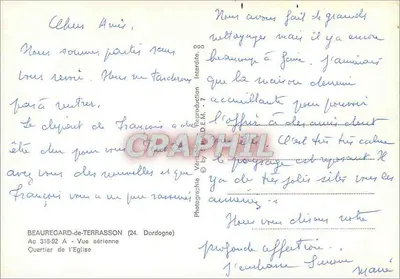 Chers Amis.
Nous sommes partis sans
vous revoir. Nous ne tarderons
pas à rentrer.
Le départ de François a dû
être dur pour vous tous.
avez vous des nouvelles et que
François vous a un peu rassurés
BEAUREGARD-de-TERRASSON (24. Dordogne)
Ao 318-92 A - Vue aérienne
Quartier de l'Eglise
Photographie Véritable - Reproduction Interdite.
© by
D.E.M. - 7
CPAPHIL
Nous avons fait le grands
nettoyages mais il y a encore
beaucoup à faire. J'aimerais
que la maison devienne
accueillante pour pouvoir
l'offrir à des amis
C'est très très calme
le paysage est reposant. Il y
a de très jolis sites vous les
aimeriez.
Nous vous disons notre
profonde affection.
J'embrasse Simone
Marie